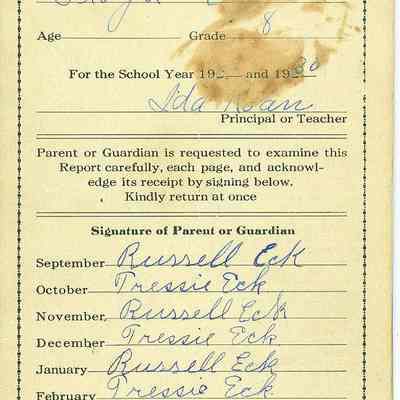 Age Grade 8
For the School Year 192 and 1930
Ida
Principal or Teacher
Parent or Guardian is requested to examine this
Report carefully, each page, and acknowl-
edge its receipt by signing below.
Kindly return at once
Signature of Parent or Guardian
September Russell Eck
October Tressie Eck
November, Russell Eck
December Tressie Eck
January Russell Eck
February Tressie Eck